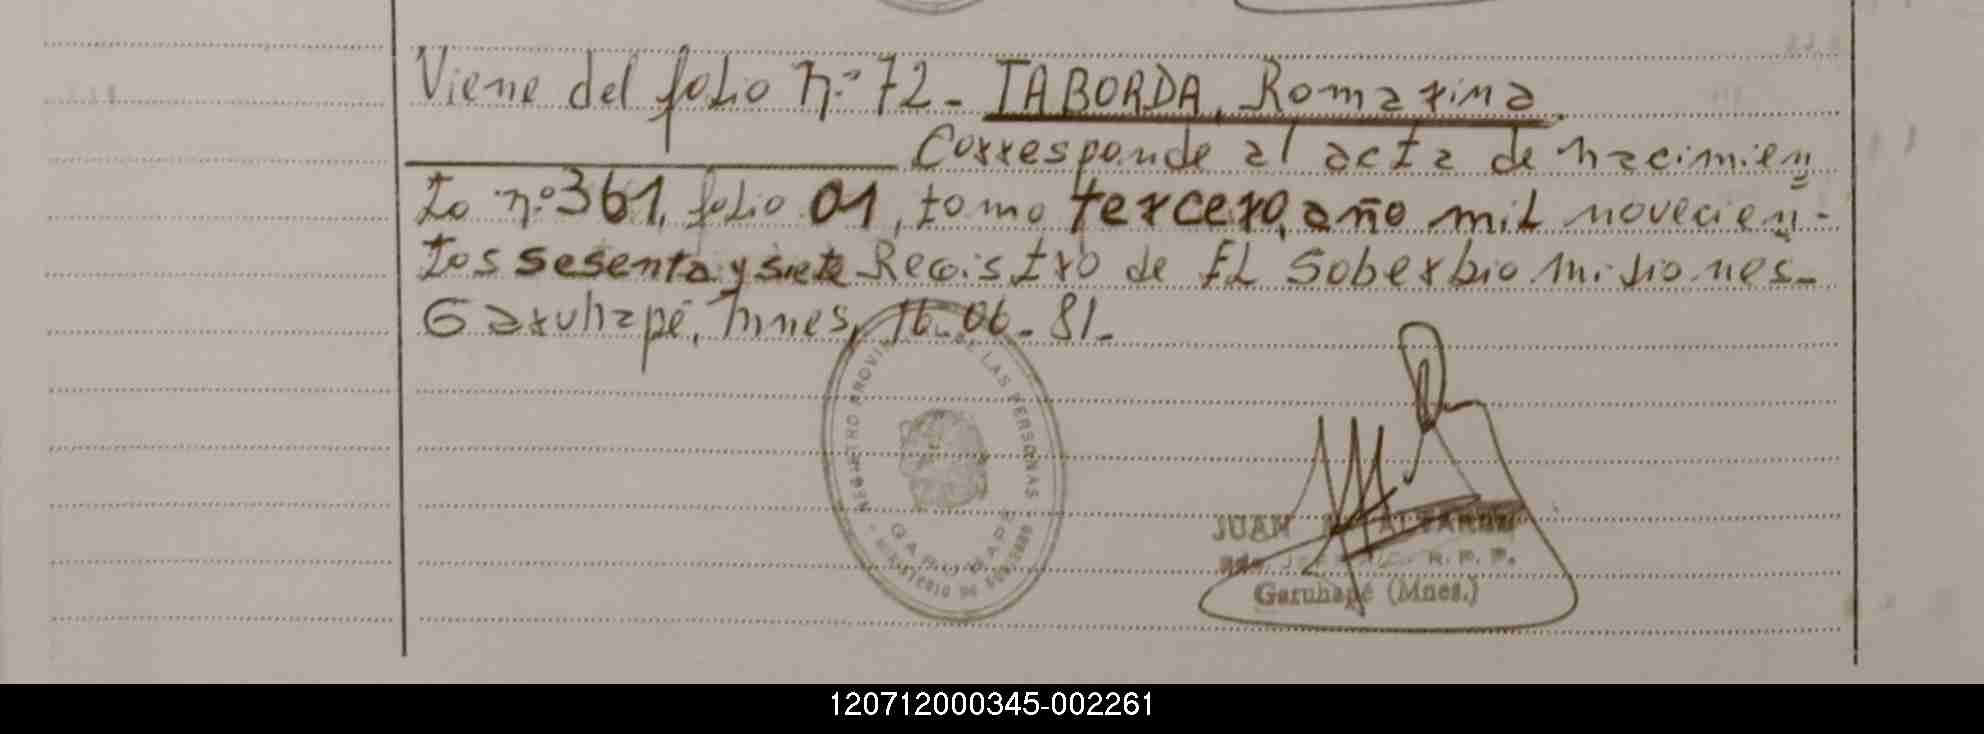 Viene del folio n.º 72 - TABORDA, Romarina
Corresponde al acta de nacimien
to n.º 361, folio 01, tomo tercero, año mil novecien-
tos sesenta y siete Registro de EL Soberbio Misiones-
Garuhapé, Mnes, 16-06-81-
REGISTRO PROVINCIAL DE LAS PERSONAS
GARUHAPE
MINISTERIO DE GOBIERNO
JUAN ALVAREZ
R. P. P.
Garuhapé (Mnes.)
120712000345-002261